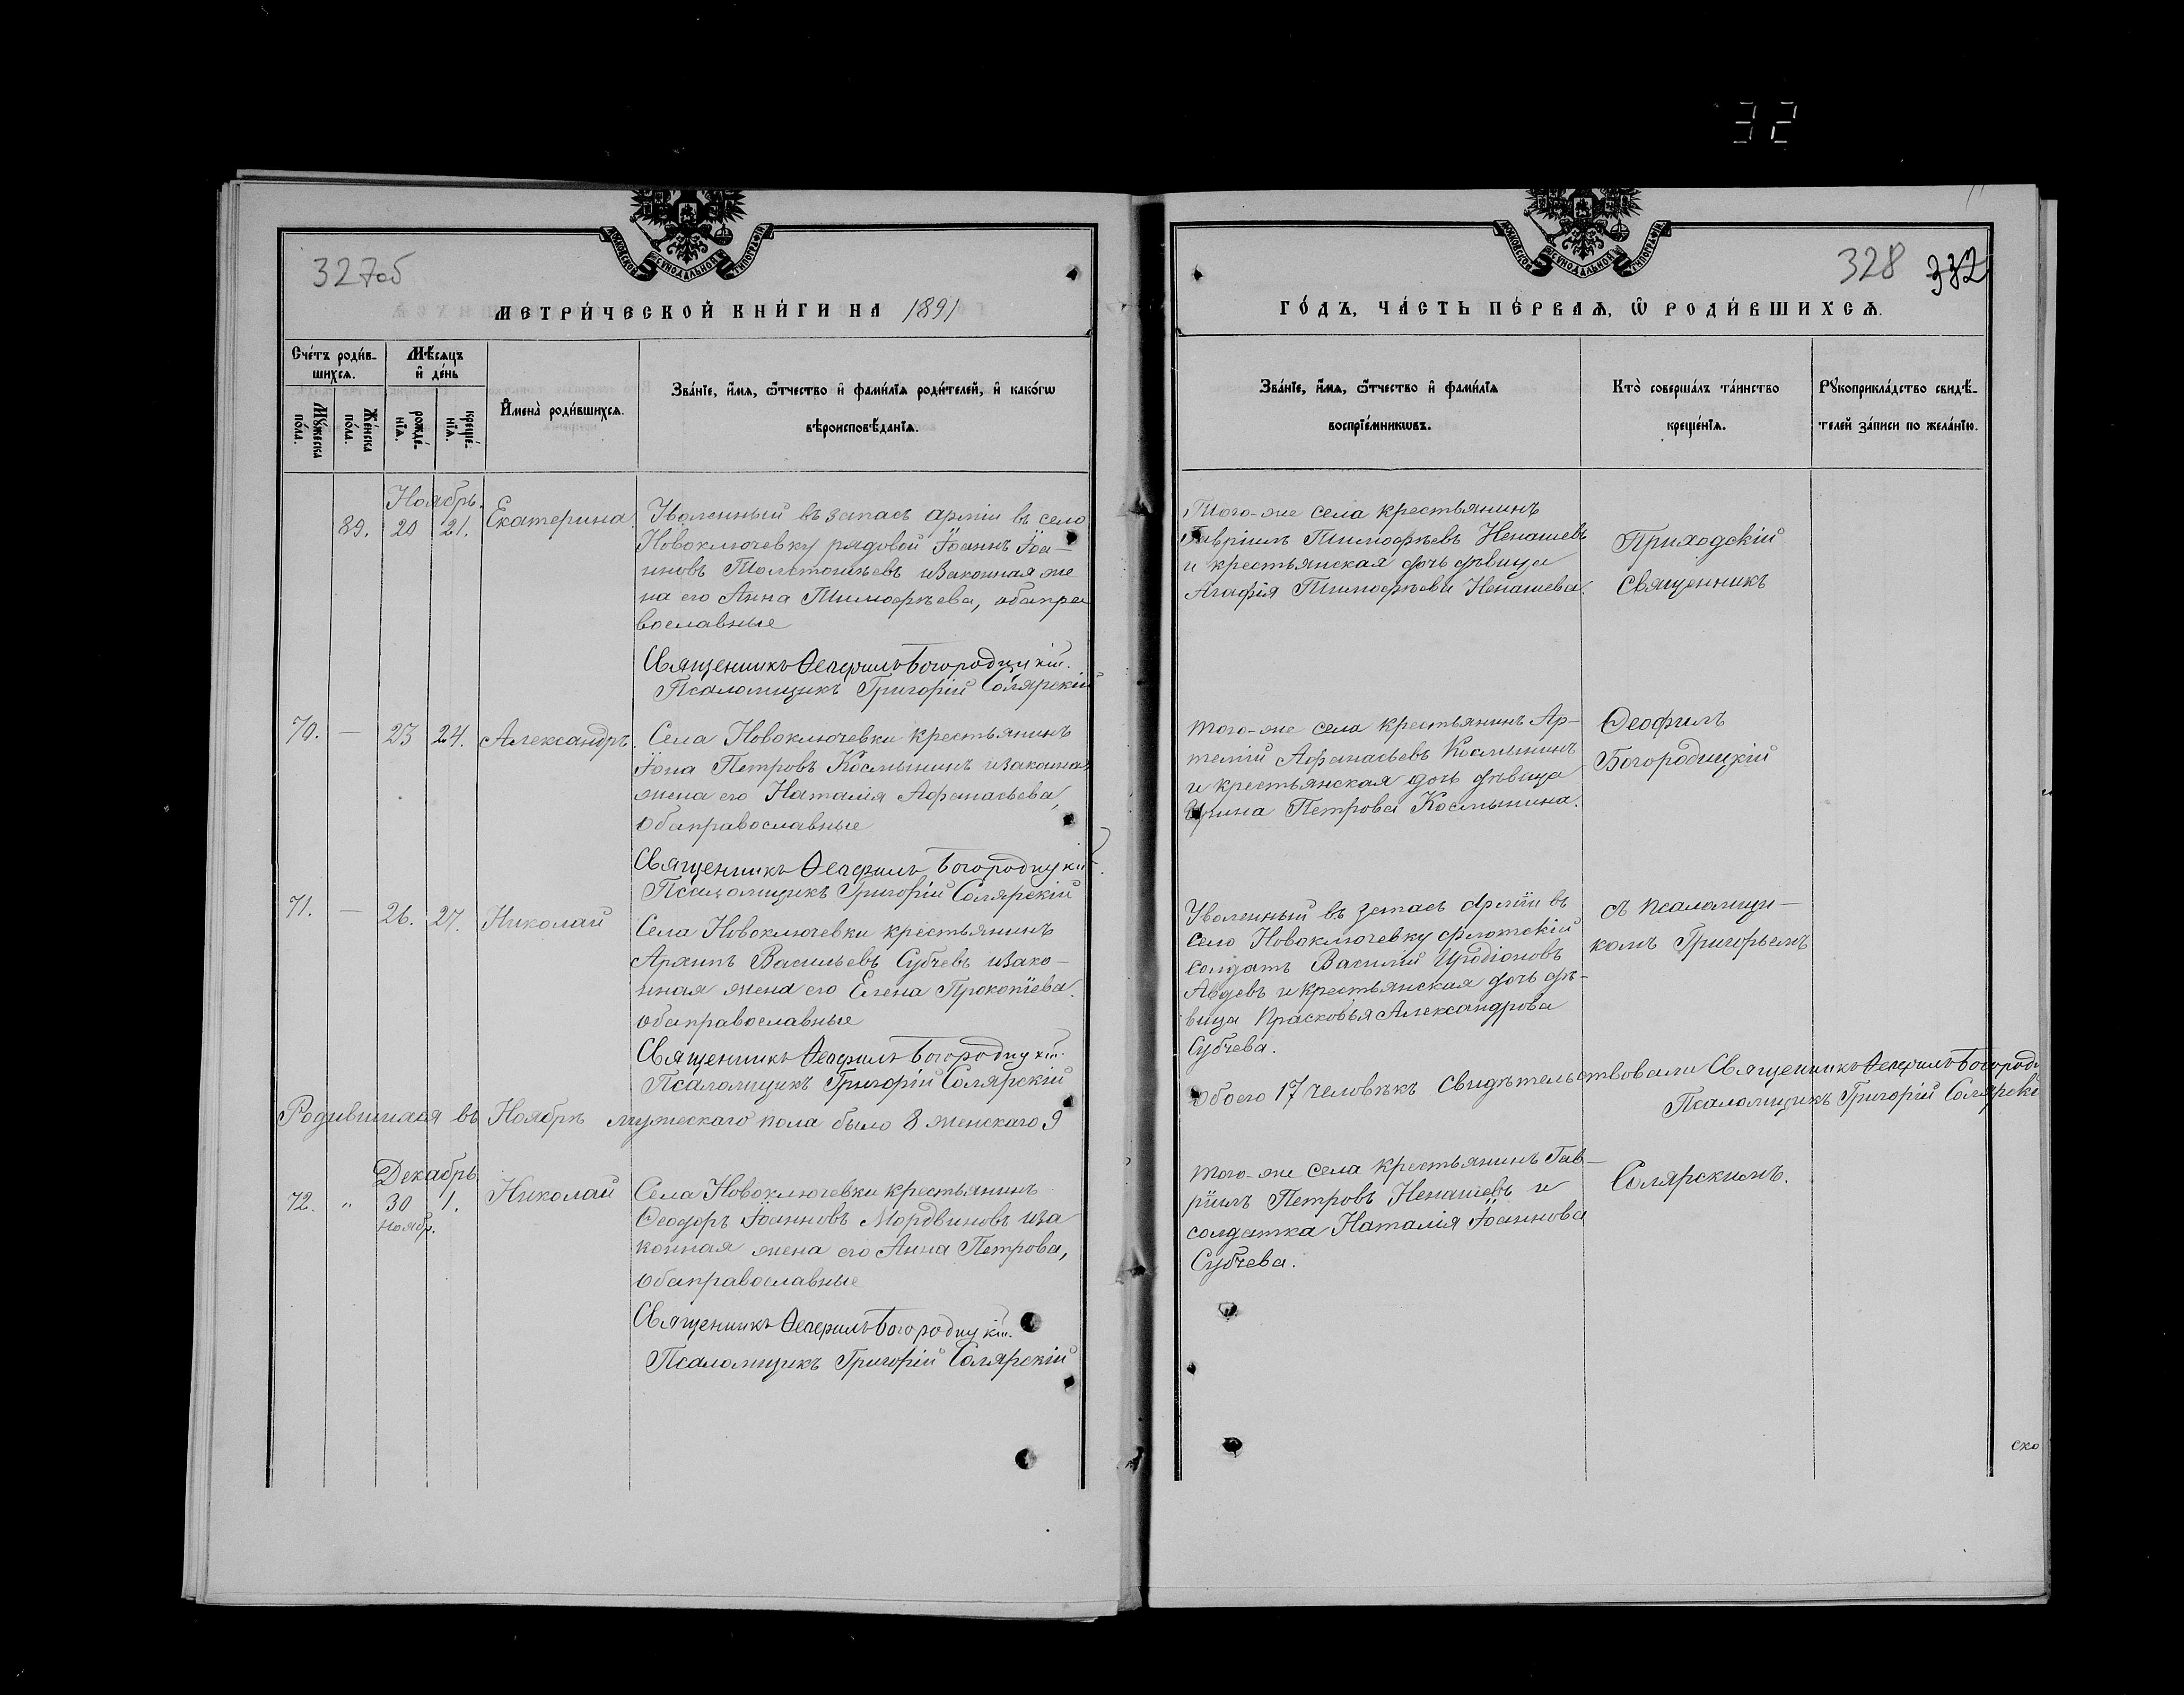 32
327об
МОСКОВСКОЙ СѴНОДАЛЬНОЙ ТИПОГРАФІИ
МЕТРИ́ЧЕСКОЙ КНИ́ГИ НА 1891
Сче́тъ роди́в-
шихсѧ.
Мѣ́сѧцъ
и҆ де́нь
Мꙋ́жеска
по́ла.
Же́нска
по́ла.
рожде́-
нїѧ.
креще́-
нїѧ.
И҆мена̀ роди́вшихсѧ.
Зва́нїе, и҆́мѧ, ѻ҆́тчество и҆ фами́лїѧ роди́телей, и҆ како́гѡ
вѣроисповѣ́данїѧ.
Ноябрь.
89. 20 21. Екатерина.
Уволенный въ запасъ арміи въ село
Новоключевку рядовой Іоаннъ Іоа-
нновъ Толстошеевъ и законная же
на его Анна Тимофѣева, оба пра
вославные
Священникъ Ѳеофилъ Богородицкій.
Псаломщикъ Григорій Солярскій
70. — 23 24. Александръ.
Села Новоключевки крестьянинъ
Іона Петровъ Космынинъ и законная
жена его Наталія Афанасьева,
оба православные
Священникъ Ѳеофилъ Богородицкій.
Псаломщикъ Григорій Солярскій
71. — 26. 27. Николай
Села Новоключевки крестьянинъ
Архипъ Васильевъ Субчевъ и зако-
нная жена его Елена Прокопіева.
оба православные
Священникъ Ѳеофилъ Богородицкій.
Псаломщикъ Григорій Солярскій
Родившихся въ Ноябрѣ мужескаго пола было 8 женскаго 9
Декабрь
72. " 30 1. Николай
Ноябр.
Села Новоключевки крестьянинъ
Ѳеодоръ Іоанновъ Мордвиновъ и за
конная жена его Анна Петрова,
оба православные
Священникъ Ѳеофилъ Богородицкій.
Псаломщикъ Григорій Солярскій
328 332
МОСКОВСКОЙ СѴНОДАЛЬНОЙ ТИПОГРАФІИ
ГО́ДЪ, ЧА́СТЬ ПЕ́РВАѦ, Ѡ҆ РОДИ́ВШИХСѦ.
Зва́нїе, и҆́мѧ, ѻ҆́тчество и҆ фами́лїѧ
воспрїе́мникѡвъ.
Кто̀ соверша́лъ та́инство
креще́нїѧ.
Рꙋкоприкла́дство свидѣ́-
телей за́писи по жела́нїю.
Того-же села крестьянинъ
Гавріилъ Тимофѣевъ Ненашевъ
и крестьянская дочь дѣвица
Агафія Тимофѣева Ненашева.
Приходскій
Священникъ
того-же села крестьянинъ Ар-
темій Афанасьевъ Космынинъ
и крестьянская дочь дѣвица
Ирина Петрова Космынина.
Ѳеофилъ
Богородицкій
Уволенный въ запасъ арміи въ
село Новоключевку флотскій
солдатъ Василій Иродіоновъ
Авдевъ и крестьянская дочь дѣ-
вица Прасковья Александрова
Субчева.
съ псаломщи-
комъ Григорьемъ
обоего 17 человѣкъ свидѣтельствовали Священникъ Ѳеофилъ Богороди
Псаломщикъ Григорій Солярскі
того-же села крестьянинъ Гав-
ріилъ Петровъ Ненашевъ и
солдатка Наталія Іоаннова
Субчева.
Солярскимъ.
ско